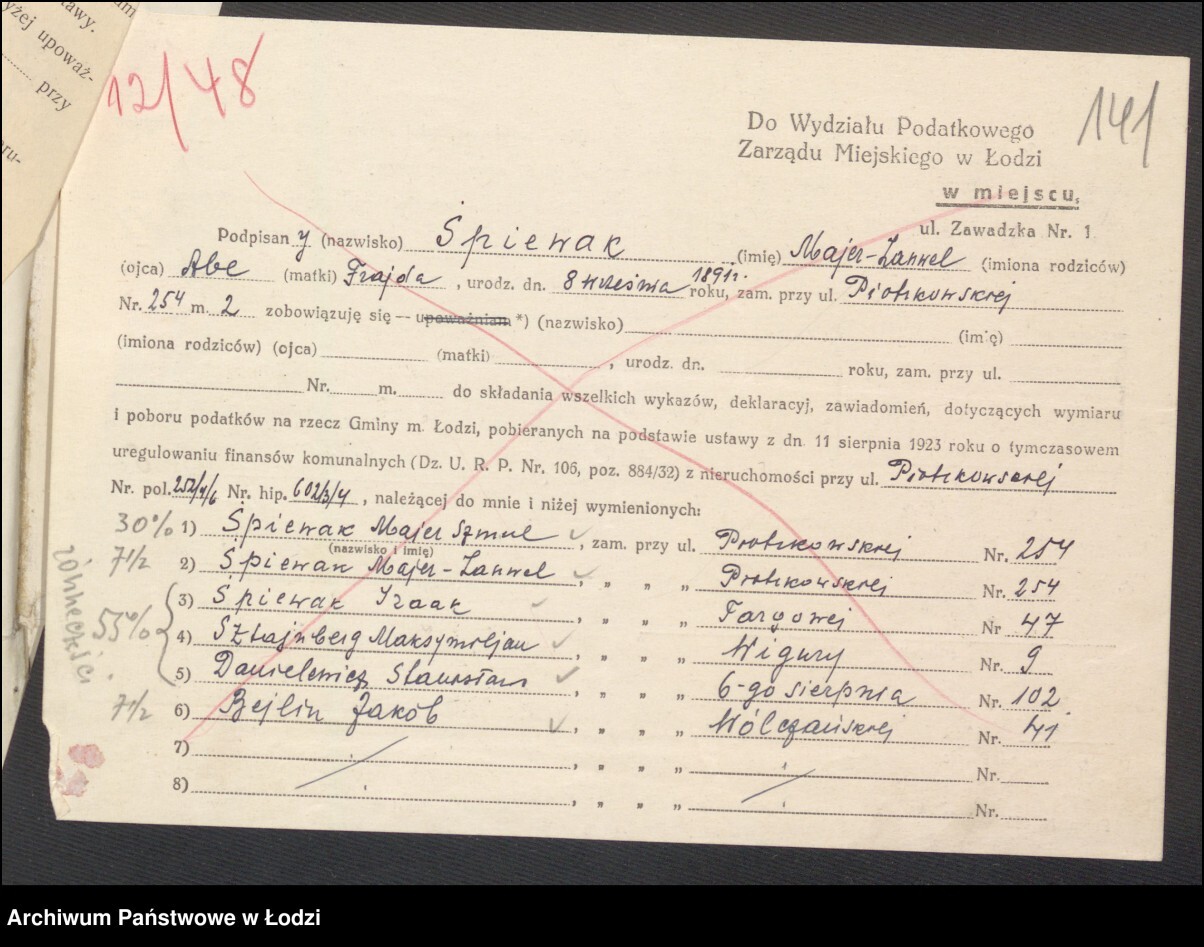 tawy.
yżej upoważ-
przy
ru-
12/48
141/
Do Wydziału Podatkowego
Zarządu Miejskiego w Łodzi
w miejscu,
ul. Zawadzka Nr. 1
Podpisan y (nazwisko) Śpiewak (imię) Majer-Zanwel (imiona rodziców)
(ojca) Abe (matki) Frajda, urodz. dn. 8 września 1891 r. roku, zam. przy ul. Piotrkowskiej
Nr. 254 m. 2 zobowiązuję się — upoważniam *) (nazwisko) (imię)
(imiona rodziców) (ojca) (matki) , urodz. dn. roku, zam. przy ul.
Nr. m. do składania wszelkich wykazów, deklaracyj, zawiadomień, dotyczących wymiaru
i poboru podatków na rzecz Gminy m. Łodzi, pobieranych na podstawie ustawy z dn. 11 sierpnia 1923 roku o tymczasowem
uregulowaniu finansów komunalnych (Dz. U. R. P. Nr. 106, poz. 884/32) z nieruchomości przy ul. Piotrkowskiej
Nr. pol. Nr. hip. 602/3/4, należącej do mnie i niżej wymienionych:
30% 1) Śpiewak Majer Szmul, zam. przy ul. Piotrkowskiej Nr. 254
(nazwisko i imię)
7 1/2 2) Śpiewak Majer-Zanwel, „ „ „ Piotrkowskiej Nr. 254
3) Śpiewak Izaak, „ „ „ Targowej Nr 47
55% 4) Sztajnberg Maksymiljan, „ „ „ Wigury Nr. 9
5) Danielewicz Stanisław, „ „ „ 6-go sierpnia Nr. 102
7 1/2 6) Bejlin Jakób, „ „ „ Wólczańskiej Nr. 41
7) , „ „ „ Nr.
8) , „ „ „ Nr.
Archiwum Państwowe w Łodzi